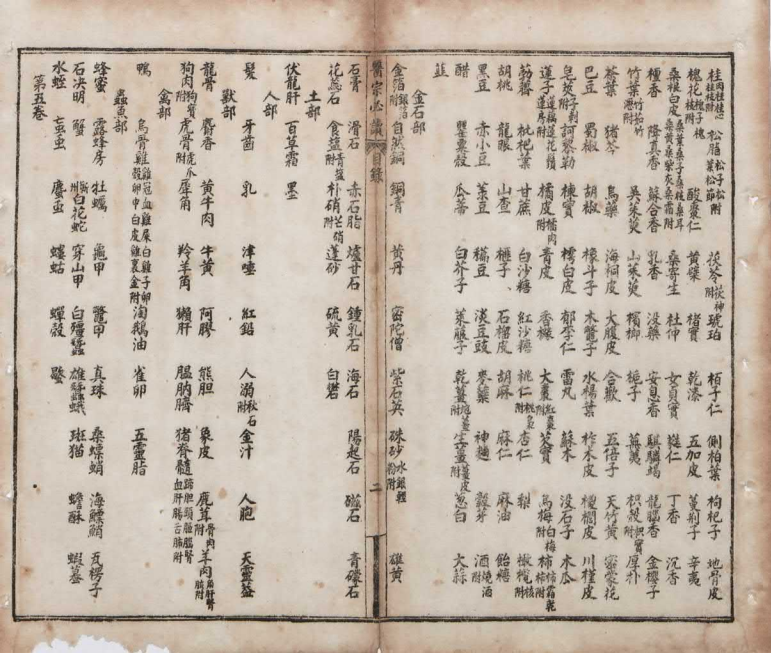 桂 肉桂桂心桂枝附 松脂 松子松葉松節附 酸棗仁 茯苓 茯神附 琥珀 栢子仁 側栢葉 枸杞子 地骨皮
槐花 槐子槐枝附 黃蘗 楮實 乾漆 五加皮 蔓荊子 辛夷
桑根白皮 桑寄生 杜仲 女貞實 蕤仁 丁香 沉香
檀香 降真香 蘇合香 乳香 沒藥 安息香 騏驎竭 龍腦香 金櫻子
竹葉 吳茱萸 山茱萸 檳榔 梔子 蕪荑 枳殼 枳實附 厚朴
茶葉 猪苓 烏藥 海桐皮 大腹皮 合歡 五倍子 天竹黃 密蒙花
巴豆 蜀椒 胡椒 橡斗子 木鱉子 水楊葉 柞木皮 椶櫚皮 川槿皮
皂莢 訶黎勒 楝實 樗白皮 郁李仁 雷丸 蘇木 沒石子 木瓜
蓮子 橘皮 青皮 香櫞 大棗 芡實 烏梅 白梅附 柿
荸薺 枇杷葉 甘蔗 白沙糖 紅沙糖 桃仁 杏仁 梨 橄欖
胡桃 龍眼 山查 榧子 石榴皮 胡麻 麻仁 麻油 飴糖
黑豆 赤小豆 菉豆 穭豆 淡豆豉 麥蘖 神麯 穀芽 酒 燒酒附
醋 罌粟殼 瓜蒂 白芥子 萊菔子 乾薑 生薑 葱白 大蒜
韮
金石部
金箔 銀箔附 自然銅 銅青 黃丹 密陀僧 紫石英 硃砂 雄黃
醫宗必讀 目錄 二
石膏 滑石 赤石脂 爐甘石 鍾乳石 海石 陽起石 磁石 青礞石
花蕊石 食鹽 青鹽附 朴硝 芒硝附 蓬砂 硫黃 白礬
土部
伏龍肝 百草霜 墨
人部
髮 牙齒 乳 津唾 紅鉛 人溺 秋石附 金汁 人胞 天靈蓋
獸部
龍骨 麝香 黃牛肉 牛黃 阿膠 熊胆 象皮 鹿茸 羊肉
狗肉 狗寶附 虎骨 虎爪附 犀角 羚羊角 獺肝 膃肭臍 猪脊髓
禽部
鴨 烏骨雞 淘鵝油 雀卵 五靈脂
蟲魚部
蜂蜜 露蜂房 牡蠣 龜甲 鱉甲 真珠 桑螵蛸 海螵蛸 瓦楞子
石決明 蟹 白花蛇 穿山甲 白殭蠶 雄蠶蛾 斑猫 蟾酥 蝦蟇
水蛭 䖟虫 䗪虫 螻蛄 蟬殼 蝎
第五卷